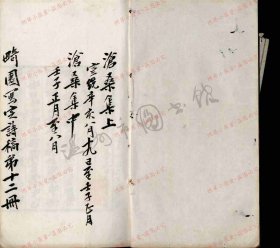 滄桑集上
宣統辛亥八月十九日至壬子正月
滄桑集中
壬子正月至八月
畸園寫定詩稿第十二冊